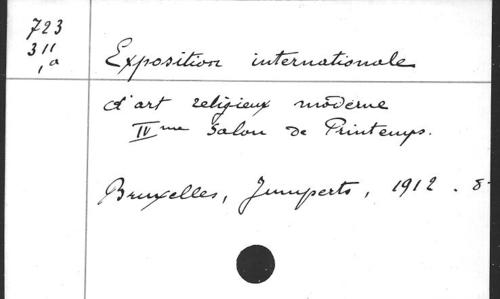 723
311
1a
Exposition internationale
d'art religieux moderne
IVme Salon de Printemps.
Bruxelles, Jumperts, 1912. 8-